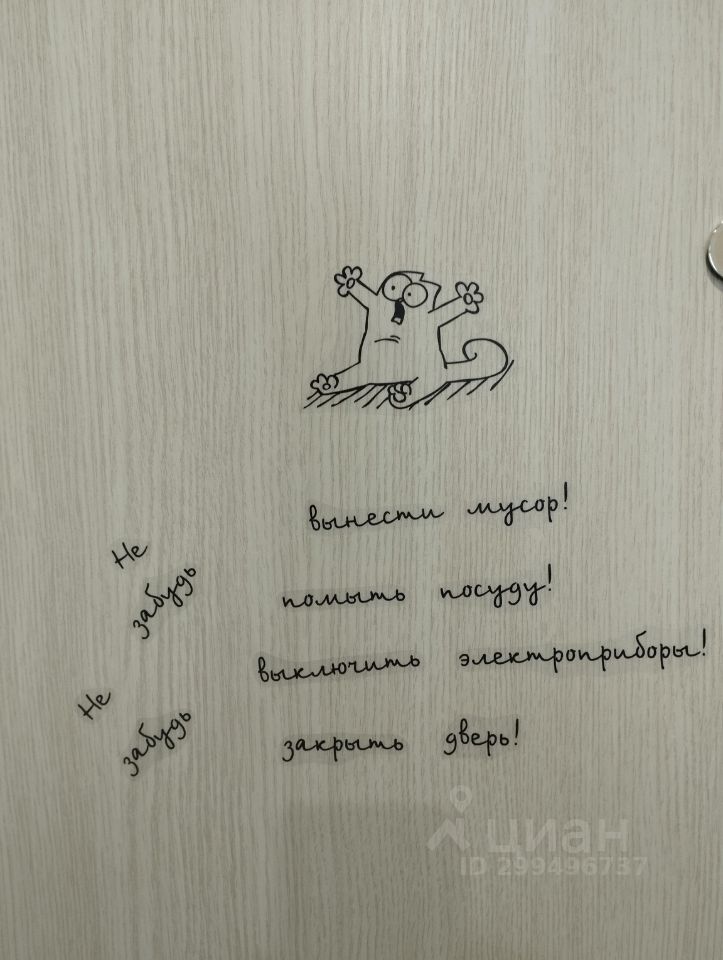 Не
забудь
вынести мусор!
помыть посуду!
Не
забудь
выключить электроприборы!
закрыть дверь!
циан
ID 299496737